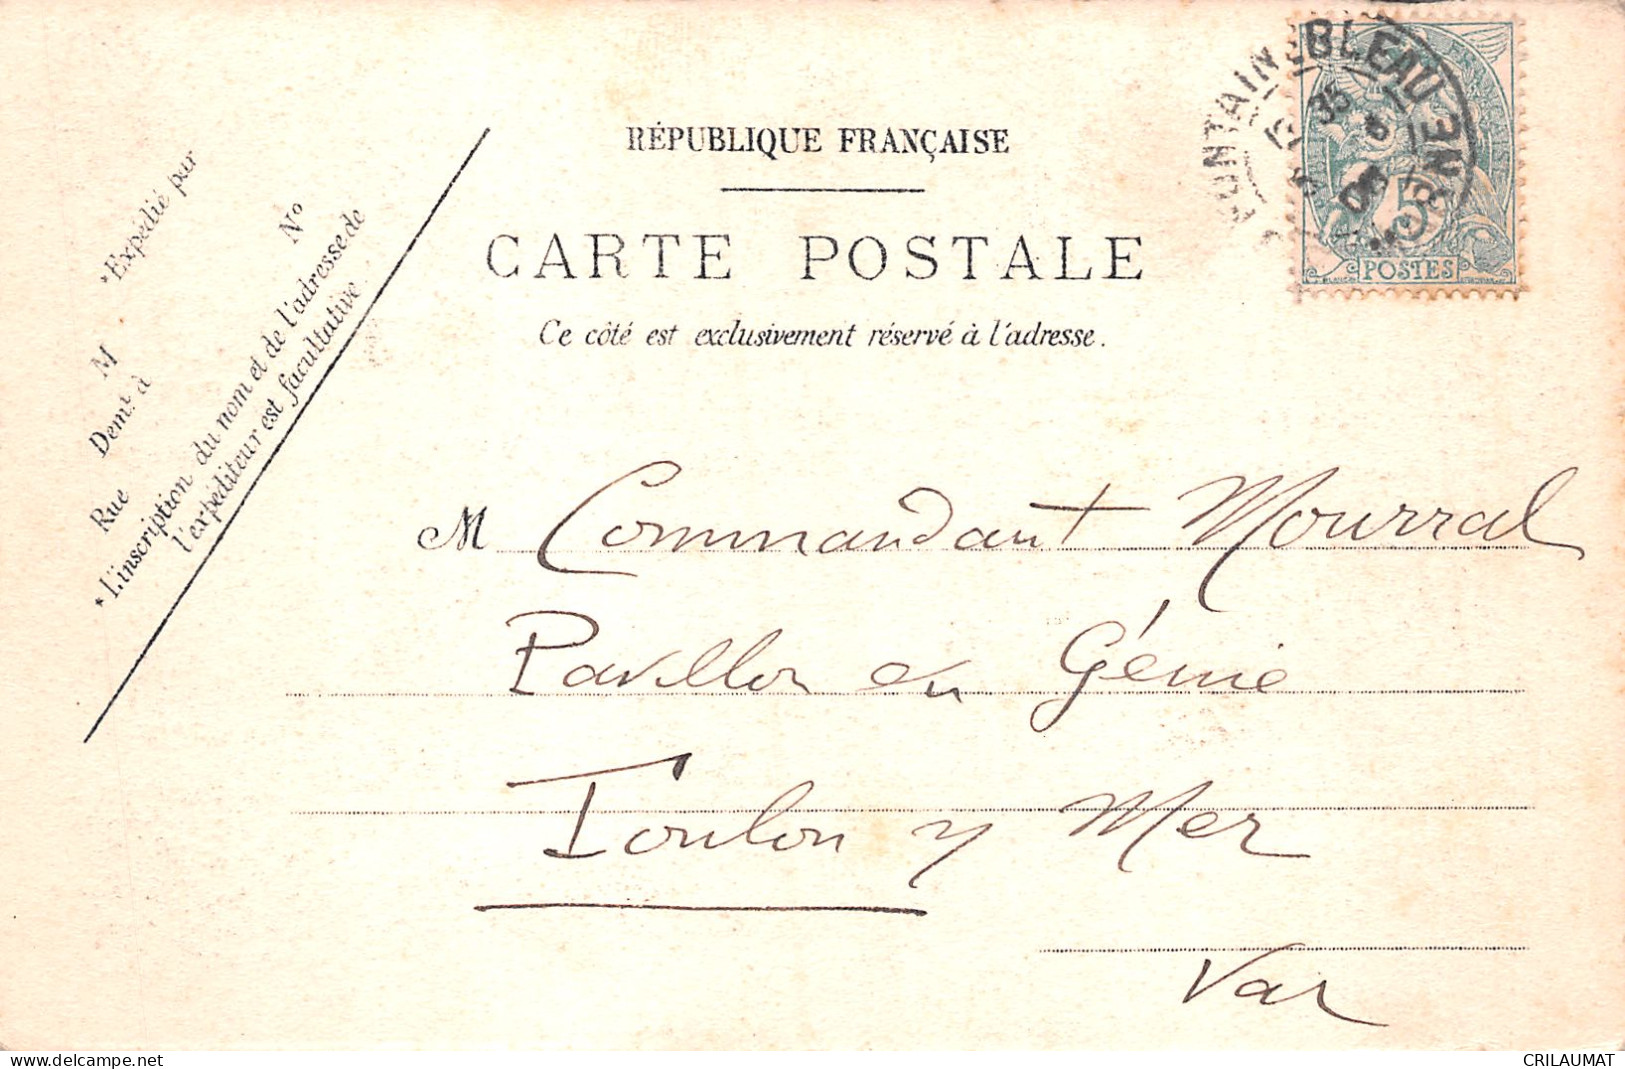 RÉPUBLIQUE FRANÇAISE
CARTE POSTALE
Ce côté est exclusivement réservé à l'adresse.
*Expédié par
M
Demt. à
Rue
No
*L'inscription du nom et de l'adresse de
l'expéditeur est facultative.
FONTAINEBLEAU
5
POSTES
M Commandant Mourral
Pavillon du Génie
Toulon s/ Mer
Var
CRILAUMAT